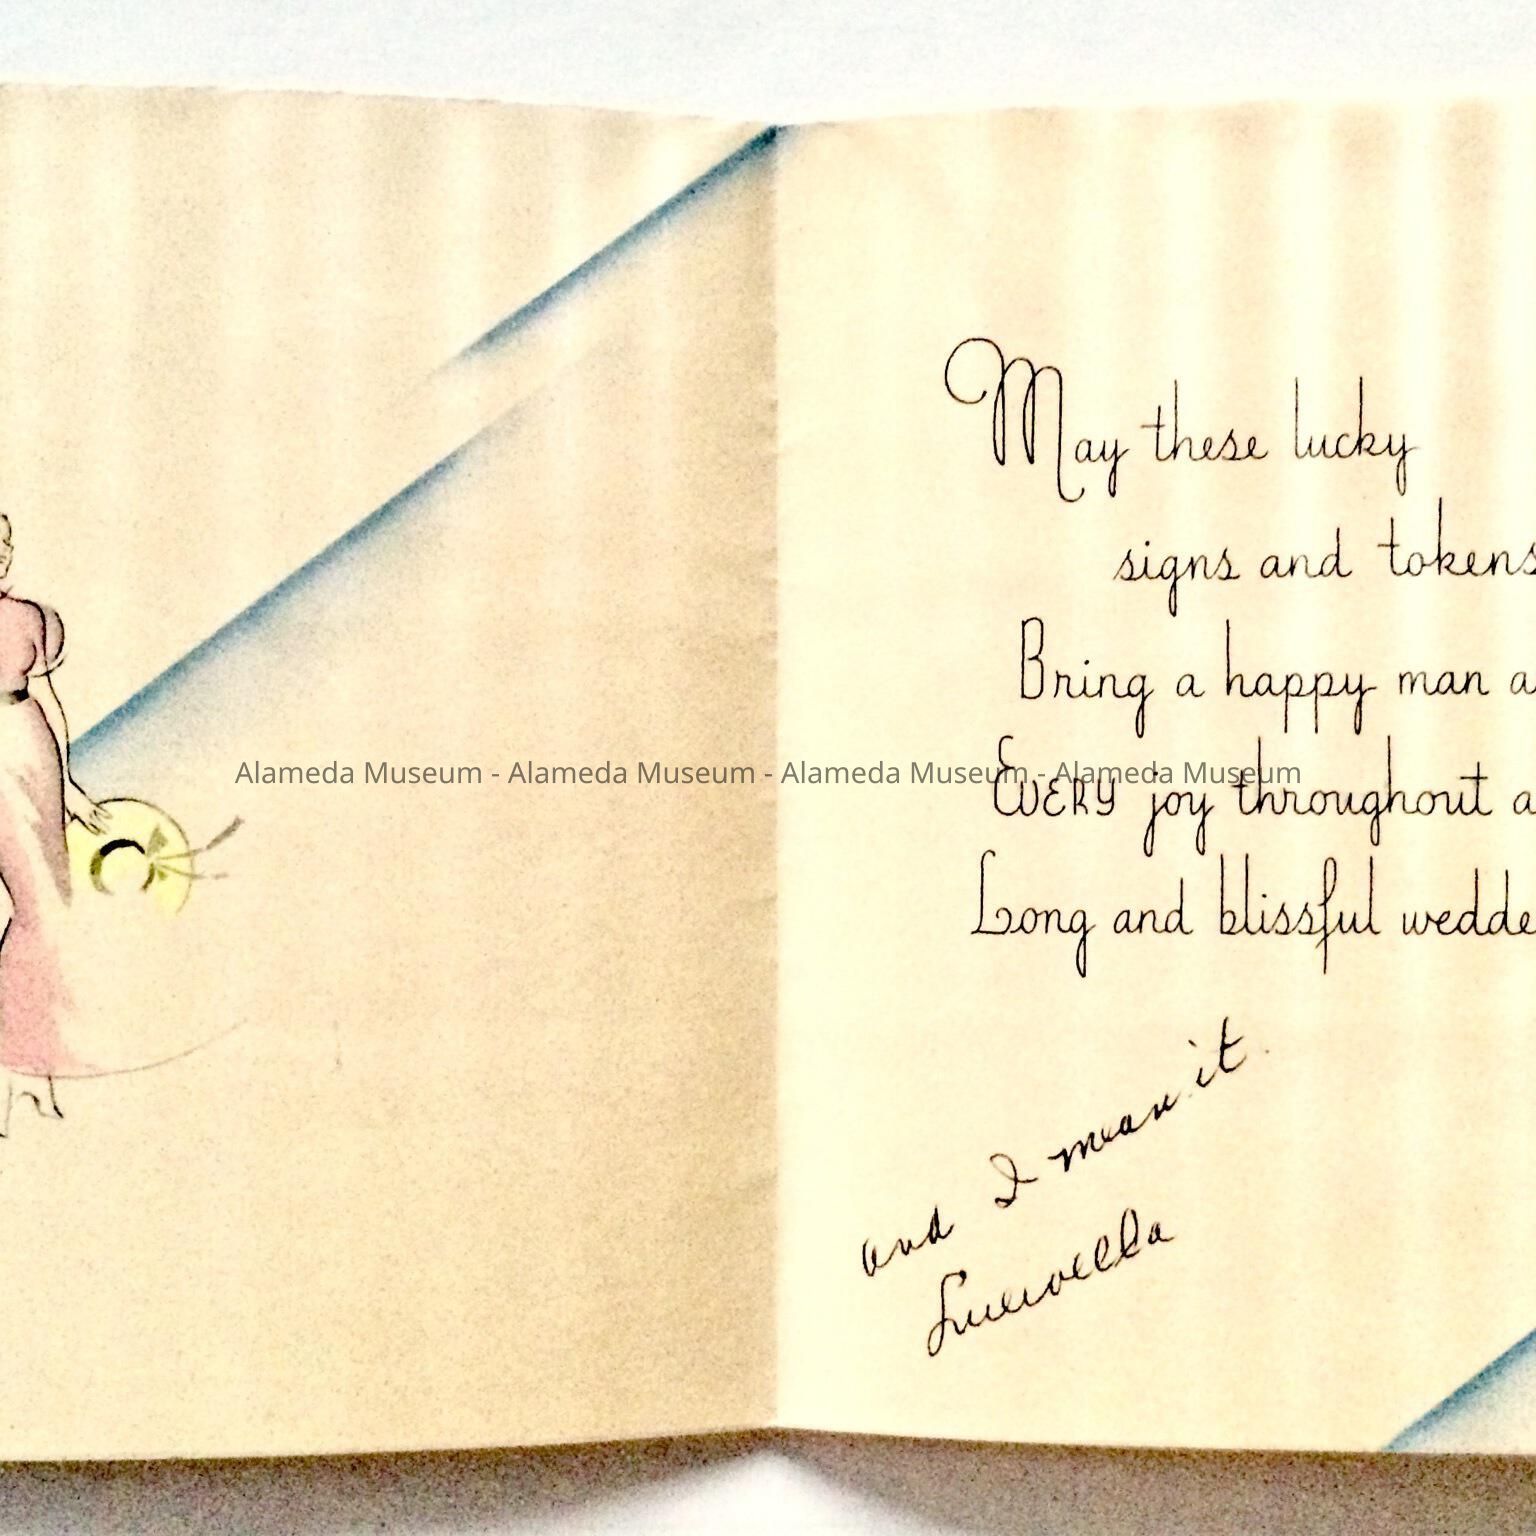 May these lucky
signs and tokens
Bring a happy man a
Alameda Museum - Alameda Museum - Alameda Museum - Alameda Museum
EVERY joy throughout a
Long and blissful wedde
and I mean it
Luewella